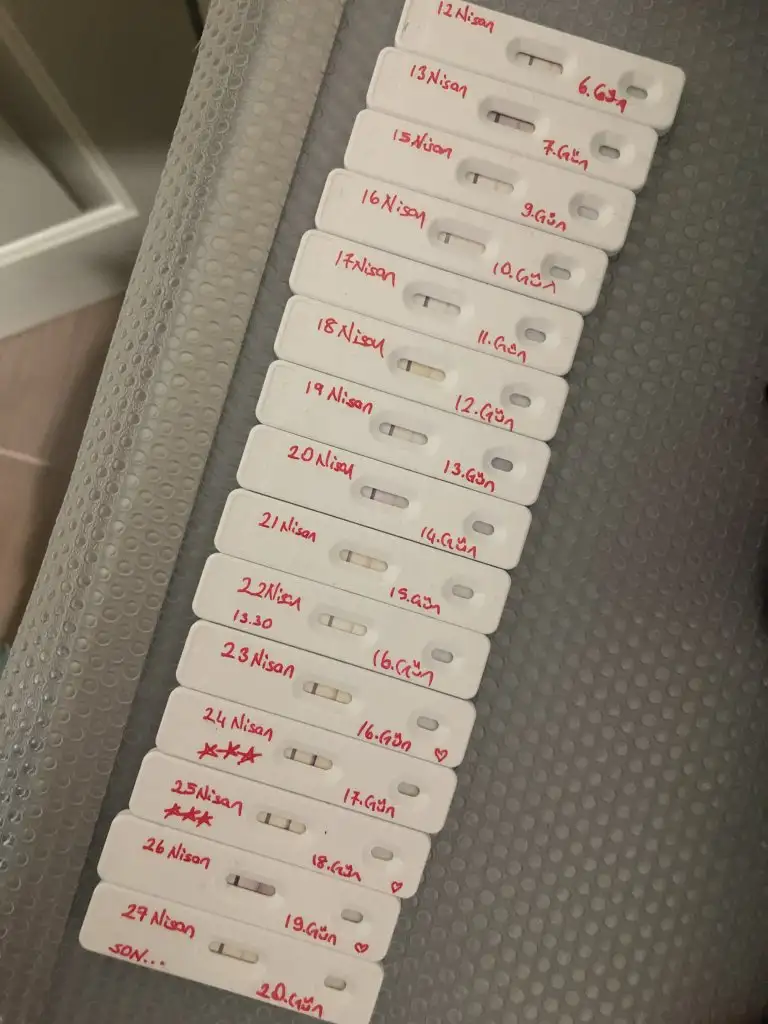 12 Nisan
6.Gün
13 Nisan
7.Gün
15 Nisan
9.Gün
16 Nisan
10.Gün
17 Nisan
11.Gün
18 Nisan
12.Gün
19 Nisan
13.Gün
20 Nisan
14.Gün
21 Nisan
15.Gün
22 Nisan
13.30
16.Gün
23 Nisan
16.Gün ♡
24 Nisan
★★★
17.Gün
25 Nisan
★★★
18.Gün ♡
26 Nisan
19.Gün ♡
27 Nisan
SON...
20.Gün